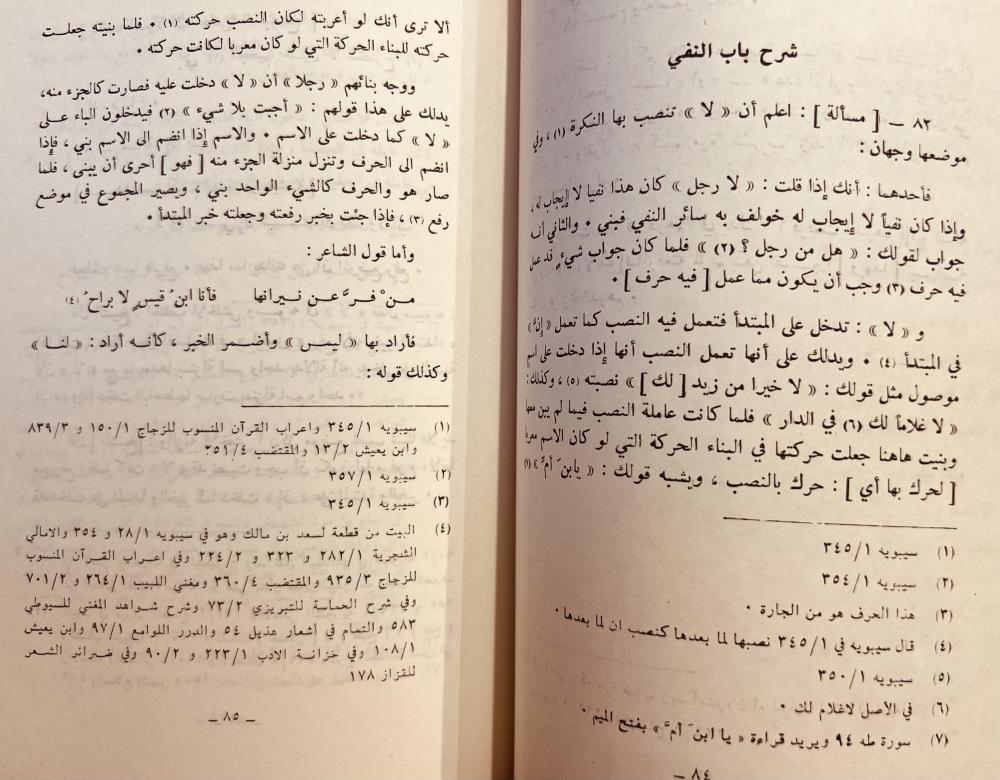 شرح باب النفي
٨٢ ــ [ مسألة ] : اعلم أن « لا » تنصب بها النكرة (١) ، وفي
موضعها وجهان :
فأحدهما : أنك إذا قلت : « لا رجل » كان هذا نفيا لا إيجاب له ،
وإذا كان نفياً لا إيجاب له خولف به سائر النفي فبني • والثاني أنه
جواب لقولك : « هل من رجل ؟ (٢) » فلما كان جواب شيءٍ قد عمل
فيه حرف (٣) وجب أن يكون مما عمل [ فيه حرف ] •
و « لا » : تدخل على المبتدأ فتعمل فيه النصب كما تعمل « إنّ »
في المبتدأ (٤) • ويدلك على أنها تعمل النصب أنها إذا دخلت على اسم
موصول مثل قولك : « لا خيرا من زيد [ لك ] » نصبته (٥) ، وكذلك :
« لا غلاماً لك (٦) في الدار » فلما كانت عاملة النصب فيما لم يبن معها
وبنيت هاهنا جعلت حركتها في البناء الحركة التي لو كان الاسم معربا
[ لحرك بها أي ] : حرك بالنصب ، ويشبه قولك : « يابنَ أمَّ » (٧)
(١) سيبويه ٣٤٥/١
(٢) سيبويه ٣٥٤/١
(٣) هذا الحرف هو من الجارة •
(٤) قال سيبويه في ٣٤٥/١ نصبها لما بعدها كنصب ان لما بعدها •
(٥) سيبويه ٣٥٠/١
(٦) في الأصل لاغلام لك •
(٧) سورة طه ٩٤ ويريد قراءة « يا ابنَ أمَّ » بفتح الميم •
ــ ٨٤
ألا ترى أنك لو أعربته لكان النصب حركته (١) • فلما بنيته جعلت
حركته للبناء الحركة التي لو كان معربا لكانت حركته •
ووجه بنائهم « رجلا » أن « لا » دخلت عليه فصارت كالجزء منه،
يدلك على هذا قولهم : « أجبت بلا شيء » (٢) فيدخلون الباء على
« لا » كما دخلت على الاسم • والاسم إذا انضم الى الاسم بني ، فإذا
انضم الى الحرف وتنزل منزلة الجزء منه [ فهو ] أحرى أن يبنى ، فلما
صار هو والحرف كالشيء الواحد بني ، ويصير المجموع في موضع
رفع (٣) ، فإذا جئت بخبر رفعته وجعلته خبر المبتدأ •
وأما قول الشاعر :
منْ فرَّ عن نيرانها فأنا ابنُ قيسٍ لا براحُ (٤)
فأراد بها « ليس » وأضمر الخبر ، كأنه أراد : « لنا »
وكذلك قوله :
(١) سيبويه ٣٤٥/١ واعراب القرآن المنسوب للزجاج ١٥٠/١ و ٨٣٩/٣
وابن يعيش ١٣/٢ والمقتضب ٢٥١/٤
(٢) سيبويه ٣٥٧/١
(٣) سيبويه ٣٤٥/١
(٤) البيت من قطعة لسعد بن مالك وهو في سيبويه ٢٨/١ و ٣٥٤ والامالي
الشجرية ٢٨٢/١ و ٣٢٣ و ٢٢٤/٢ وفي اعراب القرآن المنسوب
للزجاج ٩٣٥/٣ والمقتضب ٣٦٠/٤ ومغني اللبيب ٢٦٤/١ و ٧٠١/٢
وفي شرح الحماسة للتبريزي ٧٣/٢ وشرح شواهد المغني للسيوطي
٥٨٣ والتمام في أشعار هذيل ٥٤ والدرر اللوامع ٩٧/١ وابن يعيش
١٠٨/١ وفي خزانة الادب ٢٢٣/١ و ٩٠/٢ وفي ضرائر الشعر
للقزاز ١٧٨
ــ ٨٥ ــ